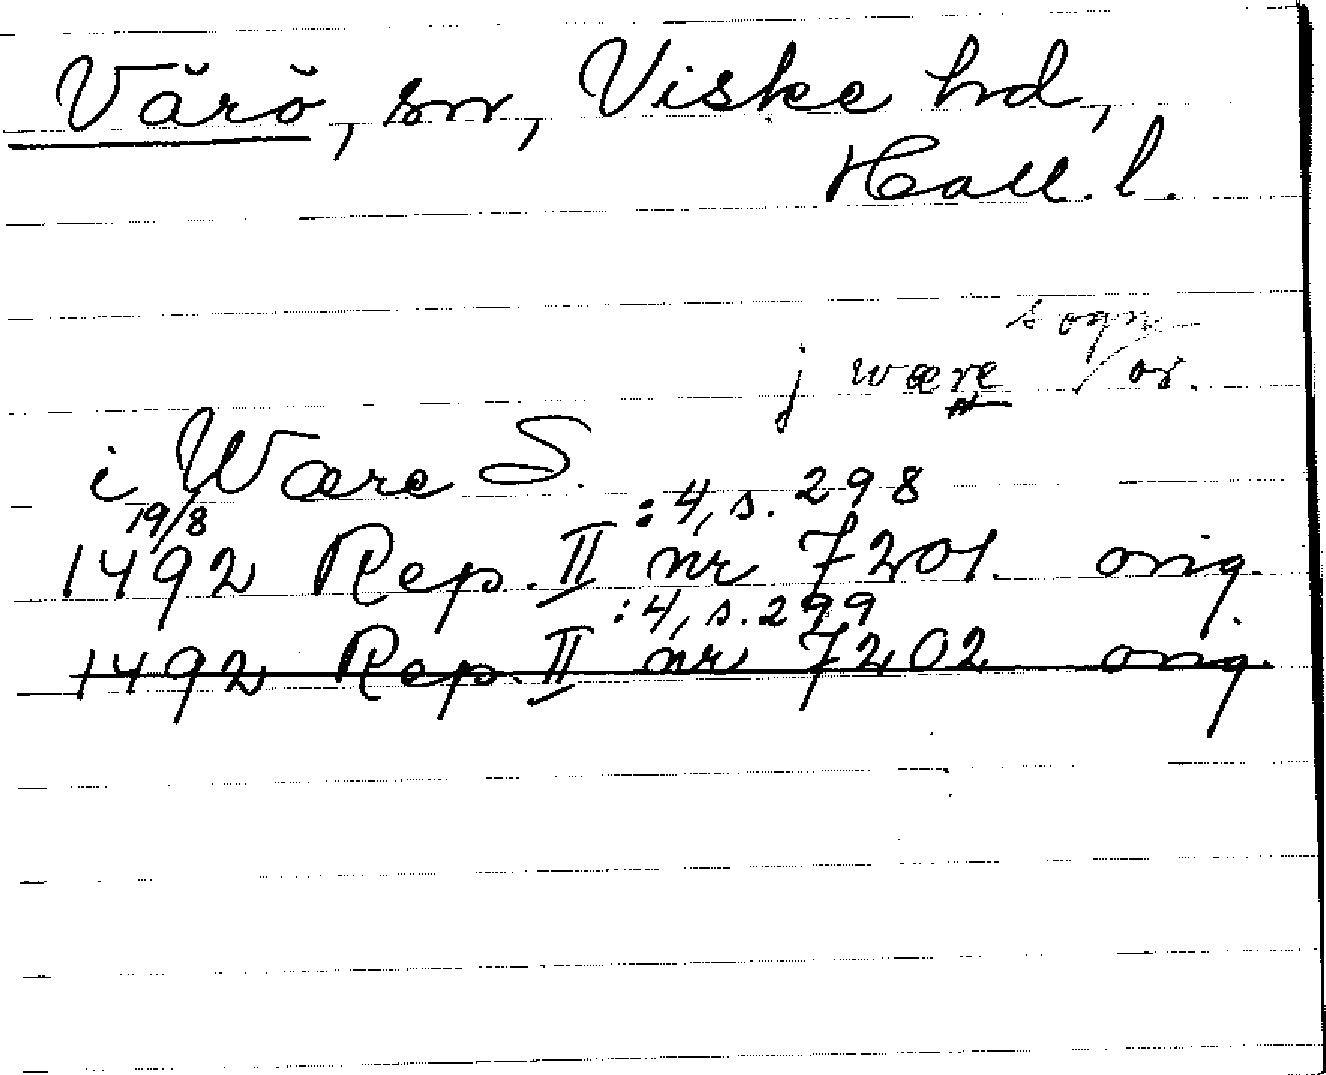 Värö, sn, Viske hd,
Hall. l.
sogn
j wære / or.
i Wære S.
19/8 :4, s. 298
1492 Rep. II nr 7201 orig.
:4, s. 299
1492 Rep. II nr 7202 orig.